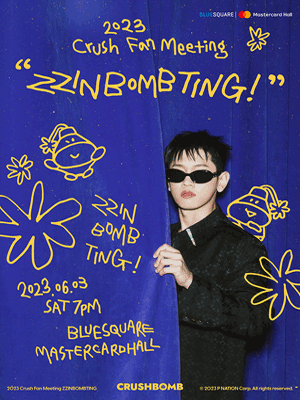 BLUESQUARE | Mastercard Hall
2023
Crush Fan Meeting
“ZZINBOMBTING!”
ZZIN
BOMB
TING!
2023.06.03
SAT 7PM
BLUESQUARE
MASTERCARDHALL
2023 Crush Fan Meeting ZZINBOMBTING
CRUSHBOMB
© 2023 P NATION Corp. All rights reserved.